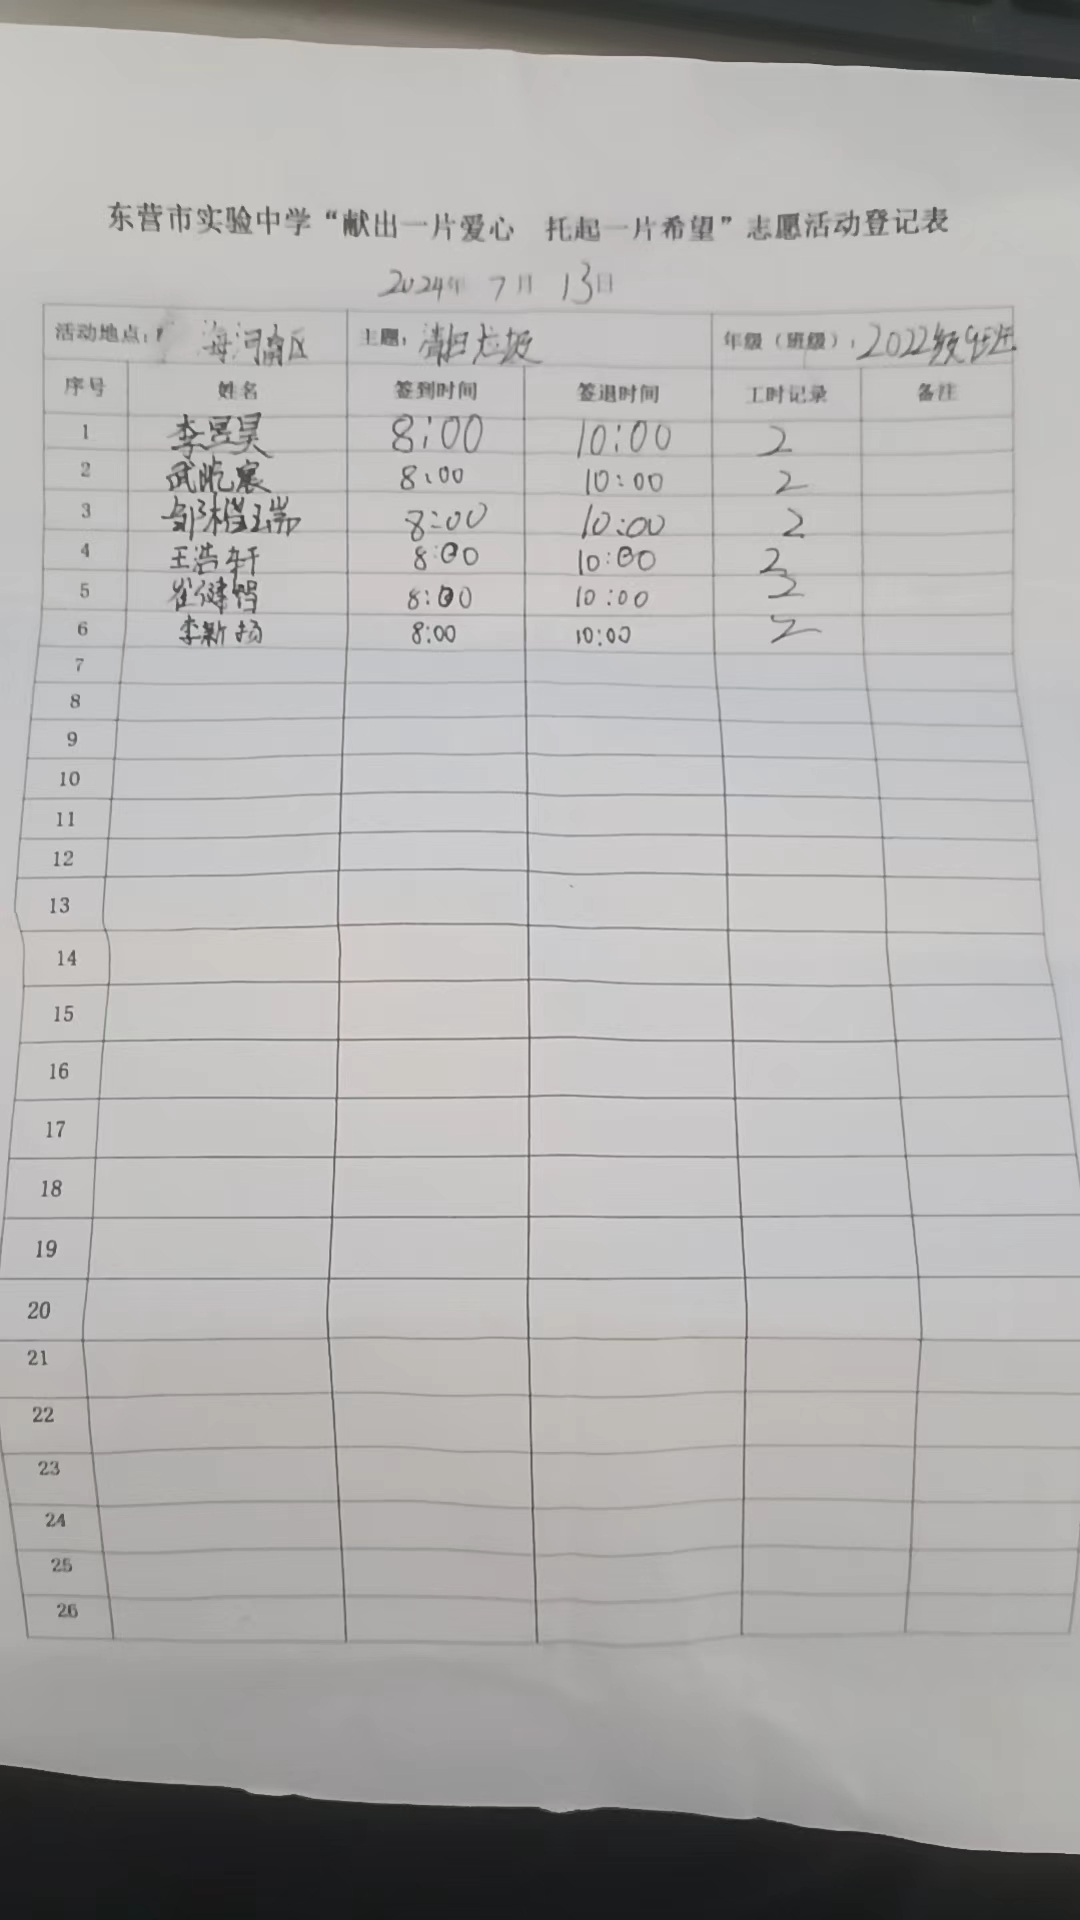 东营市实验中学“献出一片爱心 托起一片希望”志愿活动登记表
2024年 7月 13日
活动地点: 海河南区 主题: 清扫垃圾 年级（班级）: 2022级
序号 姓名 签到时间 签退时间 工时记录 备注
1 李昱昊 8:00 10:00 2
2 武 宸 8:00 10:00 2
3 邹 瑞 8:00 10:00 2
4 王浩轩 8:00 10:00 2
5 崔健 8:00 10:00 2
6 李新扬 8:00 10:00 2
7
8
9
10
11
12
13
14
15
16
17
18
19
20
21
22
23
24
25
26